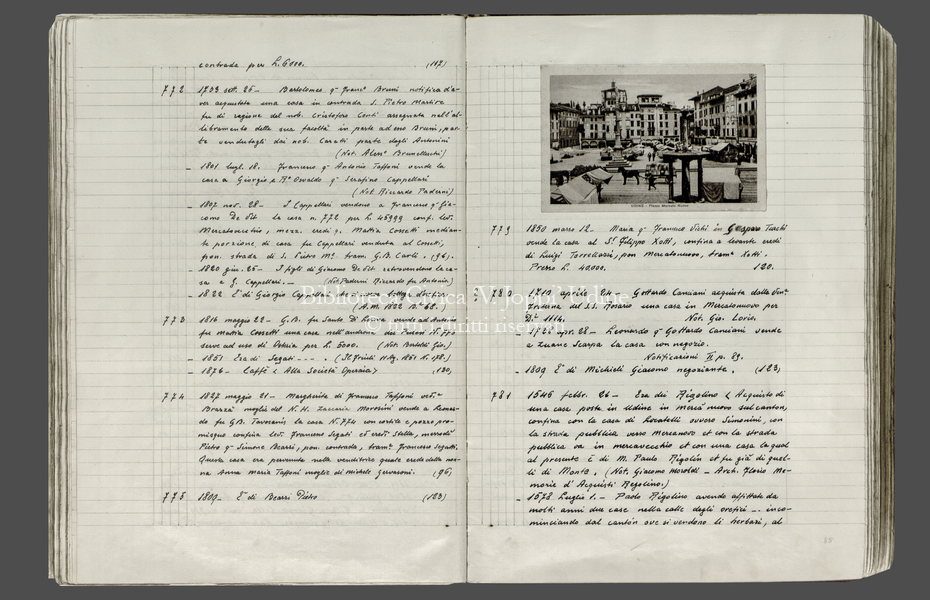 contrada per L. 6000. (117)
772 1793 ott. 26 - Bartolomeo q. Franc° Bruni notifica d'a-
ver acquistata una casa in contrada S. Pietro Martire
fu di ragione del nob. Cristoforo Conti assegnata nell'al-
libramento della sua facoltà in parte ad esso Bruni, par-
te vendutagli dai nob. Caratti parte dagli Antonini
(Not. Aless° Brunelleschi)
- 1801 lugl. 18. Francesco q. Antonio Taffoni vende la
casa a Giorgio e Osvaldo q. Serafino Cappellari
(Not. Riccardo Paderni)
- 1807 nov. 28 - I Cappellari vendono a Francesco q. Gia-
como la casa n. 772 per L. 45999 conf. lev.
Mercatovecchio, mezz. eredi q. Mattia Cossetti median-
te porzione di casa fu Cappellari venduta al Cosseti,
pon. strada di S. Pietro M. tram. G.B. Carli. (96)
- 1820 giu. 25 - I figli di Giacomo retrovendono la ca-
sa a G. Cappellari. - (Not. Paderni Riccardo fu Antonio)
- 1822 È di Giorgio
(A.M. 1822 N° 68.)
773 1816 maggio 22 - G.B. fu Sante vende ad Anto-
fu Mattia Cossetti una casa nell'androna N. 770
serve ad uso di Osteria per L. 5000. (Not. Bortoldi Gio.)
- 1851 Era di Segati - - - . (Il Friuli 1851 N. 178.)
- 1876 - Caffè « Alla Società Operaia » (130)
774 1827 maggio 21 - Margherita di Francesco Taffoni ved.
Brazzà moglie del N. H. Zaccaria Morosini vende a Leonar-
do fu G.B. Tavosanis la casa N. 774 con cortile e pozzo pro-
miscuo confina lev. Francesco Segati ed eredi Stella, merrodì
Pietro q. Simone Bearzi, pon. contrada, tram. Francesco Segatti.
Questa casa era pervenuta nella venditrice quale erede della non-
na Anna Maria Taffoni moglie di Michele Gervasoni. (96)
775 1809 - È di Bearzi Pietro (123)
UDINE - Piazza Mercato Nuovo
779 1830 marzo 12 - Maria q. Francesco Vichi in Gasparo Tuschi
vende la casa al S. Filippo Xotti, confina a levante eredi
di Luigi Torrellazzi, pon Mercatonuovo, tram. Xotti.
Prezzo L. 40000. 120.
780 1713 aprile 24 - Gottardo Camiani acquista dalla
del S.S. Rosario una casa in Mercatonuovo per
D.ti 1114. Not. Gio. Lovio.
- 1724 apr. 28 - Leonardo q. Gottardo Camiani vende
a Zuane Scarpa la casa con negozio.
Notificazioni II p. 89.
- 1809 È di Michieli Giacomo negoziante. (123)
781 1546 febbr. 26 - Era dei Rigolino « Acquisto di
una case posta in Udine in mercà nuovo sul canton,
confina con la casa di Locatelli ovvero Simonini, con
la strada pubblica verso Mercanovo et con la strada
pubblica va in mercavecchio et con una casa la qual
al presente è di M. Paulo Rigolin et fu già di quel-
li di Monta. (Not. Giacomo Moroldi - Arch. Florio Me-
morie d'Acquisti Regolino.)
- 1578 Luglio 1. - Paolo Rigolino avendo affittate da
molti anni due case nella calle degli orefici - - inco-
minciando dal cantón ove si vendono li herbazi, al
85
Biblioteca Civica V. Joppi, Udine
© tutti i diritti riservati